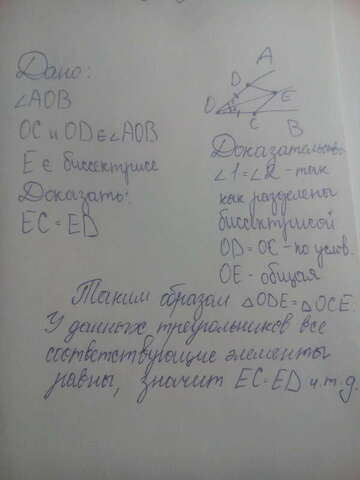 Дано:
∠AOB
OC и OD ∈ ∠AOB
E ∈ биссектрисе
Доказать:
EC = ED
A
D
E
O
1
C
B
Доказательство:
∠1 = ∠2 - так
как разделены
биссектрисой
OD = OC - по услов.
OE - общая
Таким образом △ODE = △OCE.
У данных треугольников все
соответствующие элементы
равны, значит EC = ED и т.д.